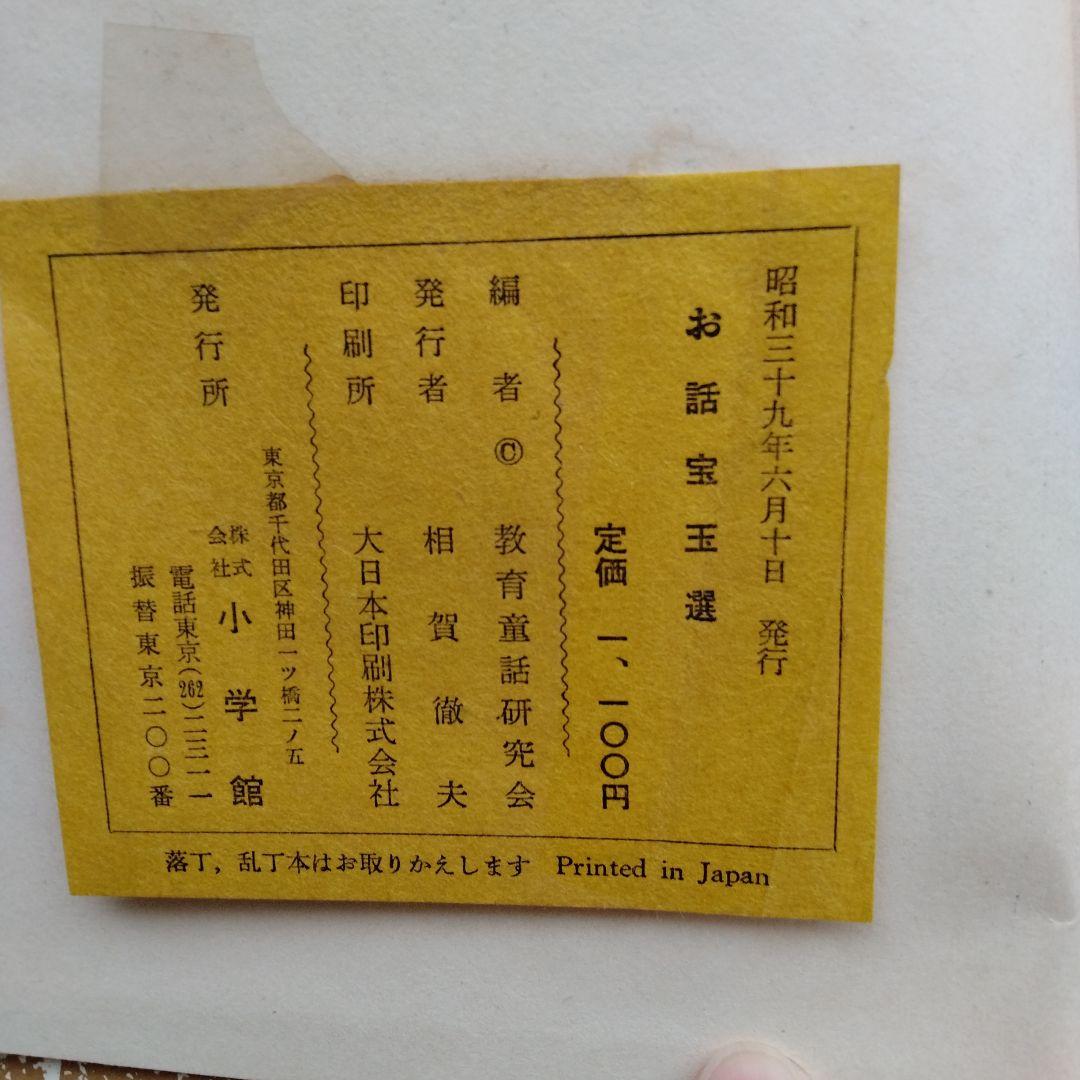 昭和三十九年六月十日　発行
お話宝玉選
定価　一、一〇〇円
編者 © 教育童話研究会
発行者　相賀徹夫
印刷所　大日本印刷株式会社
東京都千代田区神田一ツ橋二ノ五
発行所　株式会社　小学館
電話東京(262)二三一一
振替東京二〇〇番
落丁，乱丁本はお取りかえします　Printed in Japan